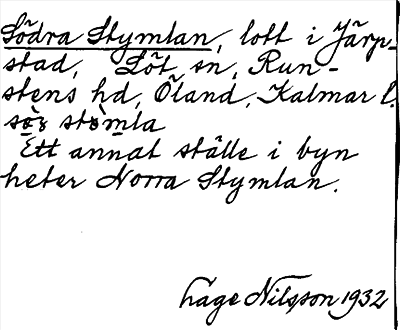 Södra Stymlan, lott i Järp-
stad, Löt sn, Run-
stens hd, Öland, Kalmar l.
sö̀ꝛ stö̀mla
Ett annat ställe i byn
heter Norra Stymlan.
Hage Nilsson 1932